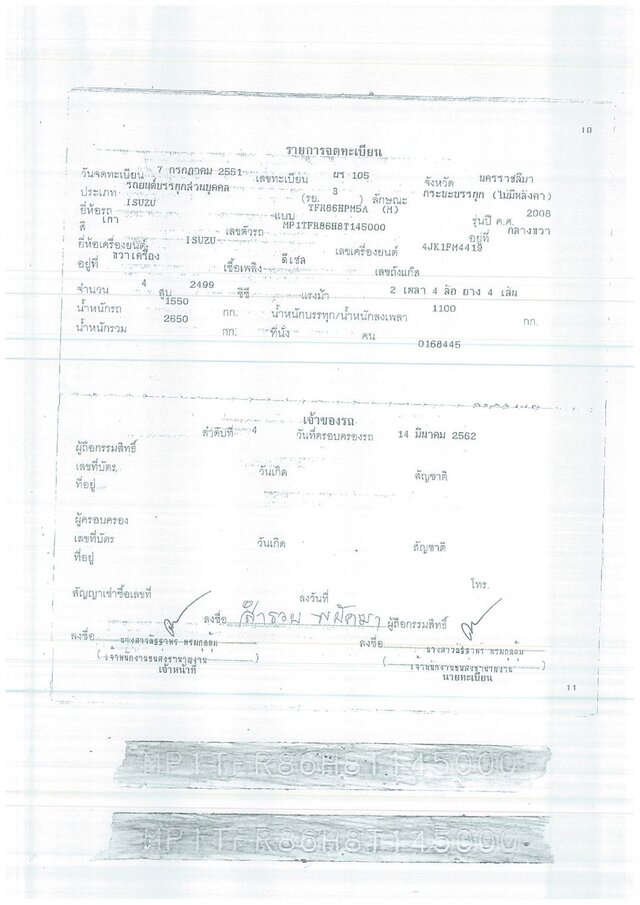 10
รายการจดทะเบียน
วันจดทะเบียน 7 กรกฎาคม 2551 เลขทะเบียน ผร 105 จังหวัด นครราชสีมา
ประเภท รถยนต์บรรทุกส่วนบุคคล (รย. 3 ) ลักษณะ กระบะบรรทุก (ไม่มีหลังคา)
ยี่ห้อรถ ISUZU แบบ TFR86HPM5A (M) รุ่นปี ค.ศ. 2008
สี เทา เลขตัวรถ MP1TFR86H8T145000 อยู่ที่ กลางขวา
ยี่ห้อเครื่องยนต์ ISUZU เลขเครื่องยนต์ 4JK1FM4419
อยู่ที่ ขวาเครื่อง เชื้อเพลิง ดีเซล เลขถังแก๊ส
จำนวน 4 สูบ 2499 ซีซี แรงม้า 2 เพลา 4 ล้อ ยาง 4 เส้น
น้ำหนักรถ 1550 กก. น้ำหนักบรรทุก/น้ำหนักลงเพลา 1100 กก.
น้ำหนักรวม 2650 กก. ที่นั่ง คน
0168445
เจ้าของรถ
ลำดับที่ 4 วันที่ครอบครองรถ 14 มีนาคม 2562
ผู้ถือกรรมสิทธิ์
เลขที่บัตร วันเกิด สัญชาติ
ที่อยู่
ผู้ครอบครอง
เลขที่บัตร วันเกิด สัญชาติ
ที่อยู่
โทร.
สัญญาเช่าซื้อเลขที่ ลงวันที่
ลงชื่อ สำรวย ผู้ถือกรรมสิทธิ์
ลงชื่อ ลงชื่อ
(เจ้าพนักงานขนส่งชำนาญงาน) (เจ้าพนักงานขนส่งชำนาญงาน)
เจ้าหน้าที่ นายทะเบียน
11
MP1TFR86H8T145000
MP1TFR86H8T145000